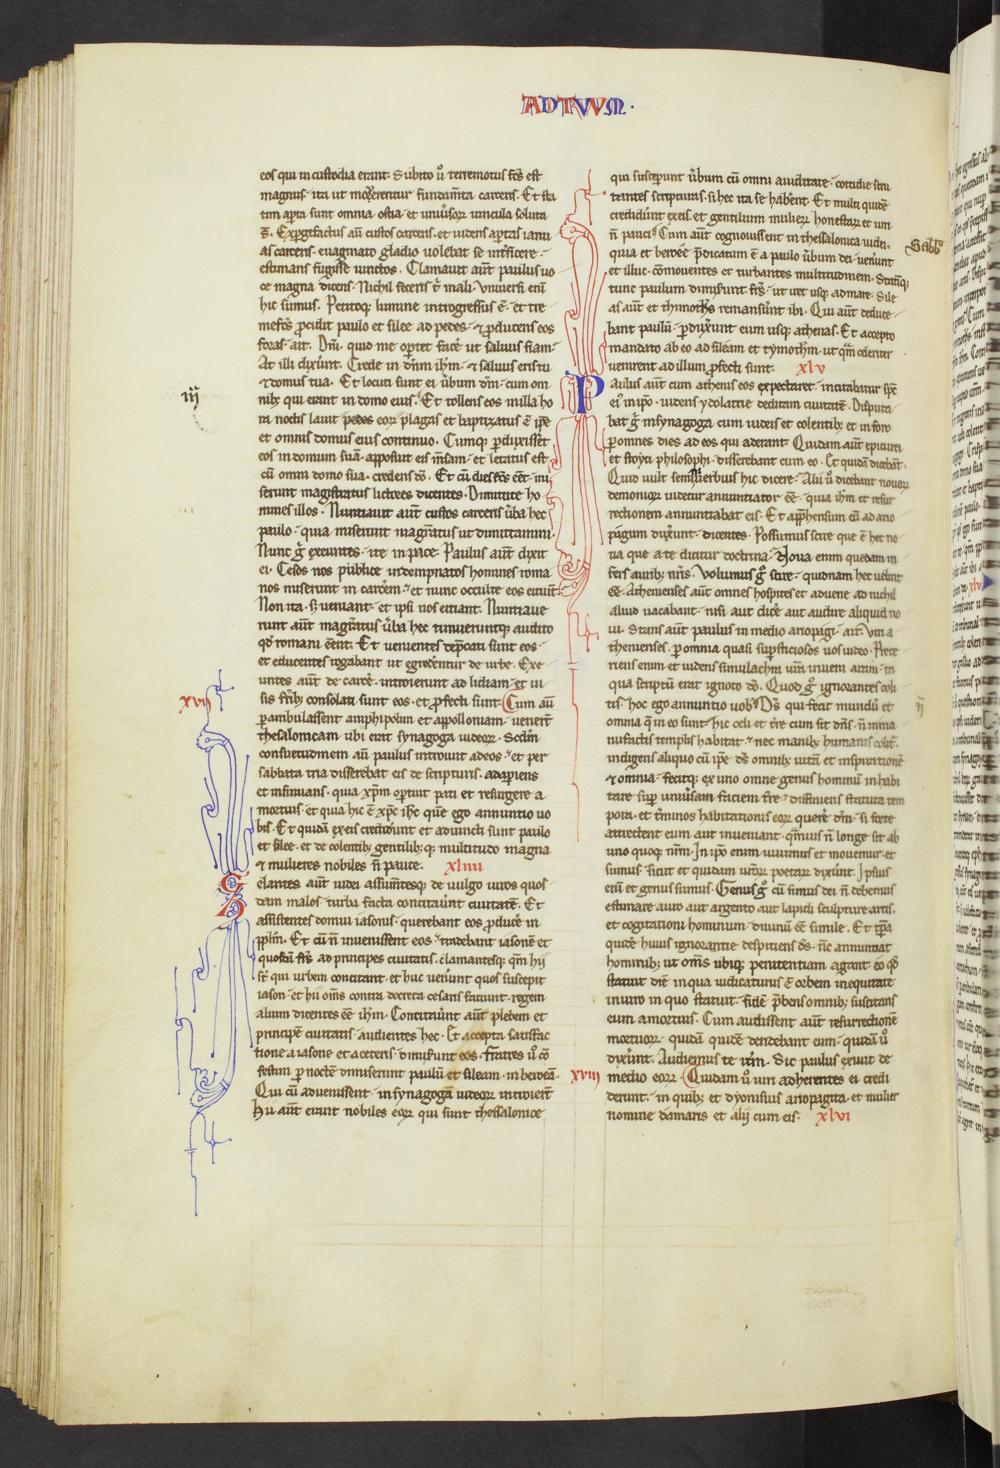 ADTVVM·
eos qui in custodia erant. Subito ů terremotus fcs est
magnus. ita ut moůerentur fundam̄ta carceris. Et sta
tim apta sunt omnia ostia. et uniůsoꝝ uincula soluta
s̄. Expgefactus aū custos carceris. et uidens aptas ianu
as carceris. euaginato gladio uolebat se int̄ficere.
estimans fugisse uinctos. Clamauit aūt paulus uo
ce magna dicens. Nichil feceris t̄ mali. Vniuersi eni
hic sumus. Petitoq; lumine introgressus ē. et tre
mefcs ꝓcidit paulo et silee ad pedes. ⁊ ꝓducens eos
foras. ait. Dn̄i. quid me optet facē ut saluus fiam.
At illi dixunt. Crede in dn̄m ihm̄. ⁊ saluus eris tu
⁊ domus tua. Et locuti sunt ei ůbum dn̄i. cum om
nib; qui erant in domo eius. Et tollens eos in illa ho
ra noctis lauit pedes eoꝝ plagas et baptizatus ē ipē
et omnis domus eius continuo. Cumq; pduxisset
eos in domum suā. apposuit eis m̄sam. et letatus est
cū omni domo sua. credens dō. Et cū dies fcs eēt. mi
serunt magistratus lictores dicentes. Dimitte ho
mines illos. Nuntiauit aūt custos carceris ůba hec
paulo. quia miserunt magr̄atus ut dimittamini.
Nunc g̊ exeuntes. ite in pace. Paulus aūt dixit
ei. Cesos nos publice indempnatos homines roma
nos miserunt in carcerem. et nunc occulte eos eiciūt.
Non ita. s; ueniant. et ipsi uos eiciant. Nuntiaue
runt aūt magr̄atus ůba hec timueruntq; audito
qd̄ romani eēnt. Et uenientes depcati sunt eos.
et educentes rogabant ut egrederentur de urbe. Exe
untes aūt de carcē. introierunt ad lidiam. et ui
sis frib; consolati sunt eos. et ꝓfecti sunt. Cum aū
pambulassent amphipolim et appolloniam. uenerūt
thesalonicam. ubi erat synagoga iudeoꝝ. Scdm̄
consuetudinem aū paulus introiuit ad eos. et per
sabbata tria disserebat eis de scripturis. adapiens
et insinuans. quia xpm̄ oportuit pati et resurgere a
mortuis. et quia hic ē xpc ihc que ego annuntio uo
bis. Et quidā ex eis crediđunt et adiuncti sunt paulo
et silee. et de colentib; gentilib; q; multitudo magna
⁊ mulieres nobiles ñ pauce. xliiii
Zelantes aūt iudei assumentesq; de uulgo uiros quos
dam malos. turba facta concitauint ciuitatē. Et
assistentes domui iasonis. querebant eos ꝓducē in
pplm̄. Et cū ñ inuenissent eos. trahebant iasonē et
quosdā frs̄ ad principes ciuitatis. clamantesq; qm̄ hii
st̄ qui urbem concitant. et huc uenunt quos suscepit
iason. et hii om̄s contra decreta cesaris faciunt. regem
alium dicentes eē ihm̄. Concitauint aūt plebem et
principē ciuitatis. audientes hec. Et accepta satisfac
tione a iasone et a ceteris. dimisunt eos. Fratres ů cō
festim p noctē dimiserunt paulū et sileam. in beroeā.
Qui cū aduenissent. in synagogā iudeoꝝ introierūt
Hii aūt erant nobiles eoꝝ qui sunt thessalonice
iij
xvij
qui susceperunt ůbum cū omni auiditate. cotidie scru
tantes scripturas. si hec ita se habent. Et multi quidē
crediđunt ex eis. et gentilium muliez honestaꝝ et uiri
ñ pauci. Cum aūt cognouissent in thessalonica iudei.
quia et beroee pdicatum ē a paulo ůbum dei. uenunt
et illuc. cōmouentes et turbantes multitudinem. Statimq;
tunc paulum dimisunt frs̄. ut iret usq; ad mare. Sile
as aūt et thimoths remansunt ibi. Qui aūt deduce
bant paulū. pduxunt eum usq; athenas. Et accepto
mandato ab eo ad sileam et tymothm̄. ut qm̄ celeriter
uenirent ad illum. ꝓfecti sunt. xlv
Paulus aūt cum athenis eos expectaret. incitabatur spc̄
ei9 in ipo. uidens ydolatrie deditam ciuitatē. Disputa
bat g̊ in synagoga cum iudeis et colentib; et in foro
p omnes dies ad eos qui aderant. Quidam aūt epicurei
et stoyci philosophi. disserebant cum eo. Et quidā dicebāt.
Quid uult seminiuerbius hic dicere. Alii ů dicebant nouoꝝ
demonioꝝ uidetur annuntiator eē. quia ihm̄ et resur
rectionem annuntiabat eis. Et apphensum eū ad ario
pagum duxunt. dicentes. Possumus scire que ē hec no
ua que a te dicitur doctrina. Noua enim quedam in
fers aurib; nris. Volumus g̊ scire. quidnam hec uelint
eē. Athenienses aūt omnes hospites et aduene ad nichil
aliud uacabant. nisi aut dicē aut audire aliquid no
ui. Stans aūt paulus in medio ariopagi. ait. Viri a
thenienses. p omnia quasi supsticiosos uos uideo. Prete
riens enim et uidens simulachra uestra inueni aram. in
qua scriptū erat ignoto dō. Quod g̊ ignorantes coli
tis. hoc ego annuntio uobis. Ds̄ qui fecit mundū et
omnia q̄ in eo sunt. hic celi et tr̄e cum sit dn̄s. ñ in ma
nufactis templis habitat. nec manib; humanis colit.
indigens aliquo cū ipē det omnib; uitā et inspirationē
⁊ omnia. fecitq; ex uno omne genus hominū inhabi
tare sup uniůsam faciem tr̄e. diffiniens statuta tem
pora. et t̄minos habitationis eoꝝ querē dm̄. si forte
attrectent eum aut inueniant. qmuis ñ longe sit ab
uno quoq; nrm̄. In ipo enim uiuimus et mouemur et
sumus. sicut et quidam uroꝝ poetaꝝ dixunt. Ipsius
eni et genus sumus. Genus g̊ cū simus dei ñ debemus
estimare auro aut argento aut lapidi sculpture artis.
et cogitationi hominum. diuinū eē simile. Et tpa
quidē huius ignorantie despiciens ds̄. nc̄ annuntiat
hominib; ut om̄s ubiq; penitentiam agant. eo qd̄
statuit diē in qua iudicaturus ē orbem in equitate
in uiro in quo statuit. fidē pbens omnib; suscitans
eum a mortuis. Cum audissent aūt resurrectionē
mortuoꝝ. quidā quidē deridebant eum. quidā ů
dixunt. Audiemus te itm̄. Sic paulus exiuit de
medio eoꝝ. Quidam ů uiri adherentes ei credi
derunt. in quib; et dyonisius ariopagita. et mulier
nomine damaris et alij cum eis. xlvi
xviij